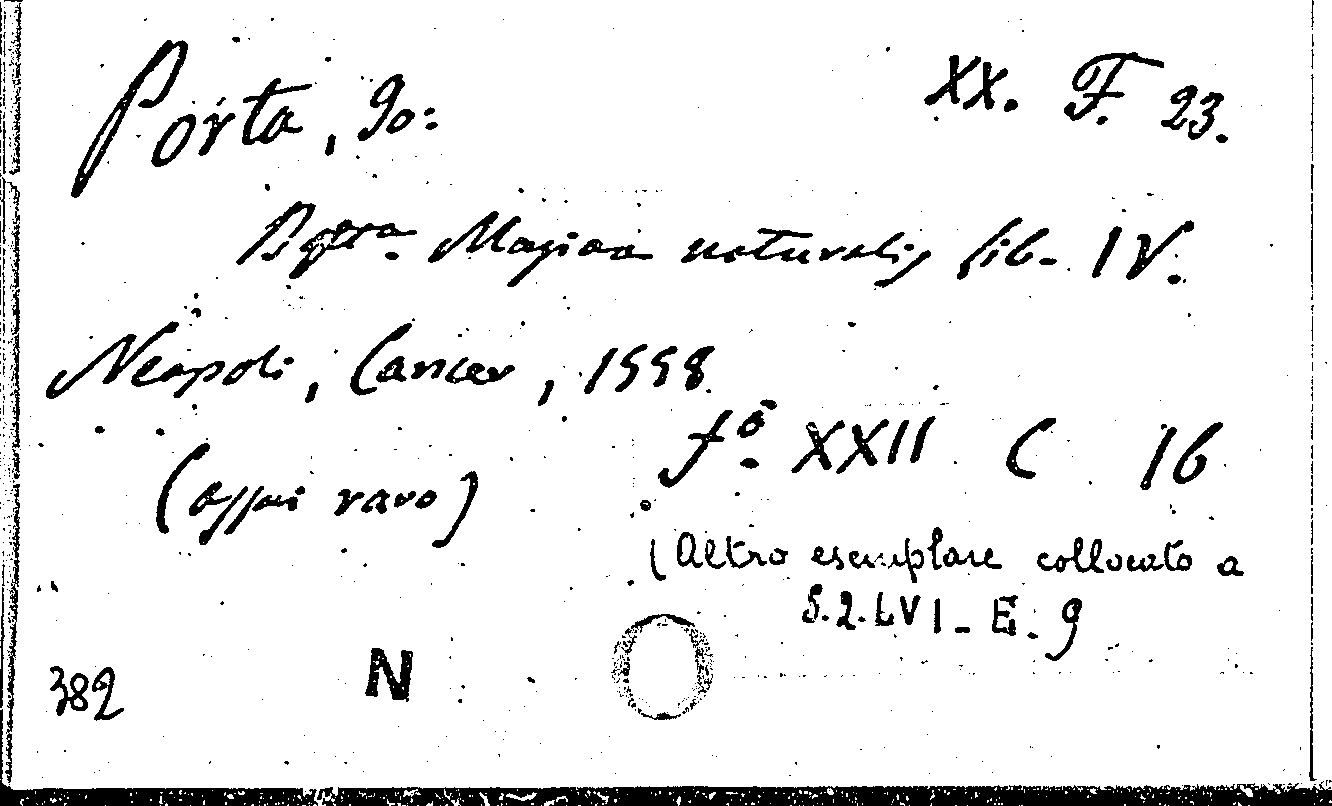 Porta, Jo: XX. F. 23.
Bᵗᵃ. Magiae naturalis, lib. IV.
Neapoli, Cancer, 1558
(assai raro) fº. XXII C 16
(Altro esemplare collocato a
S.2.LVI - E. 9
382 N